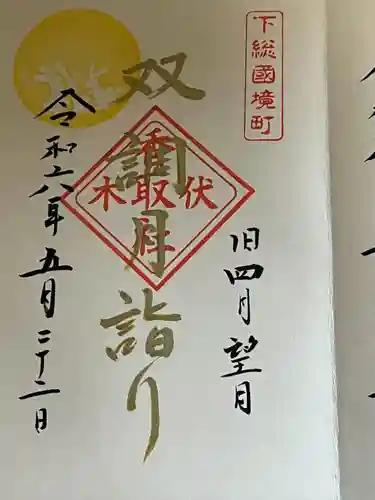 下総國境町
旧四月望月
双調月詣り
伏木香取社
令和六年五月二十二日